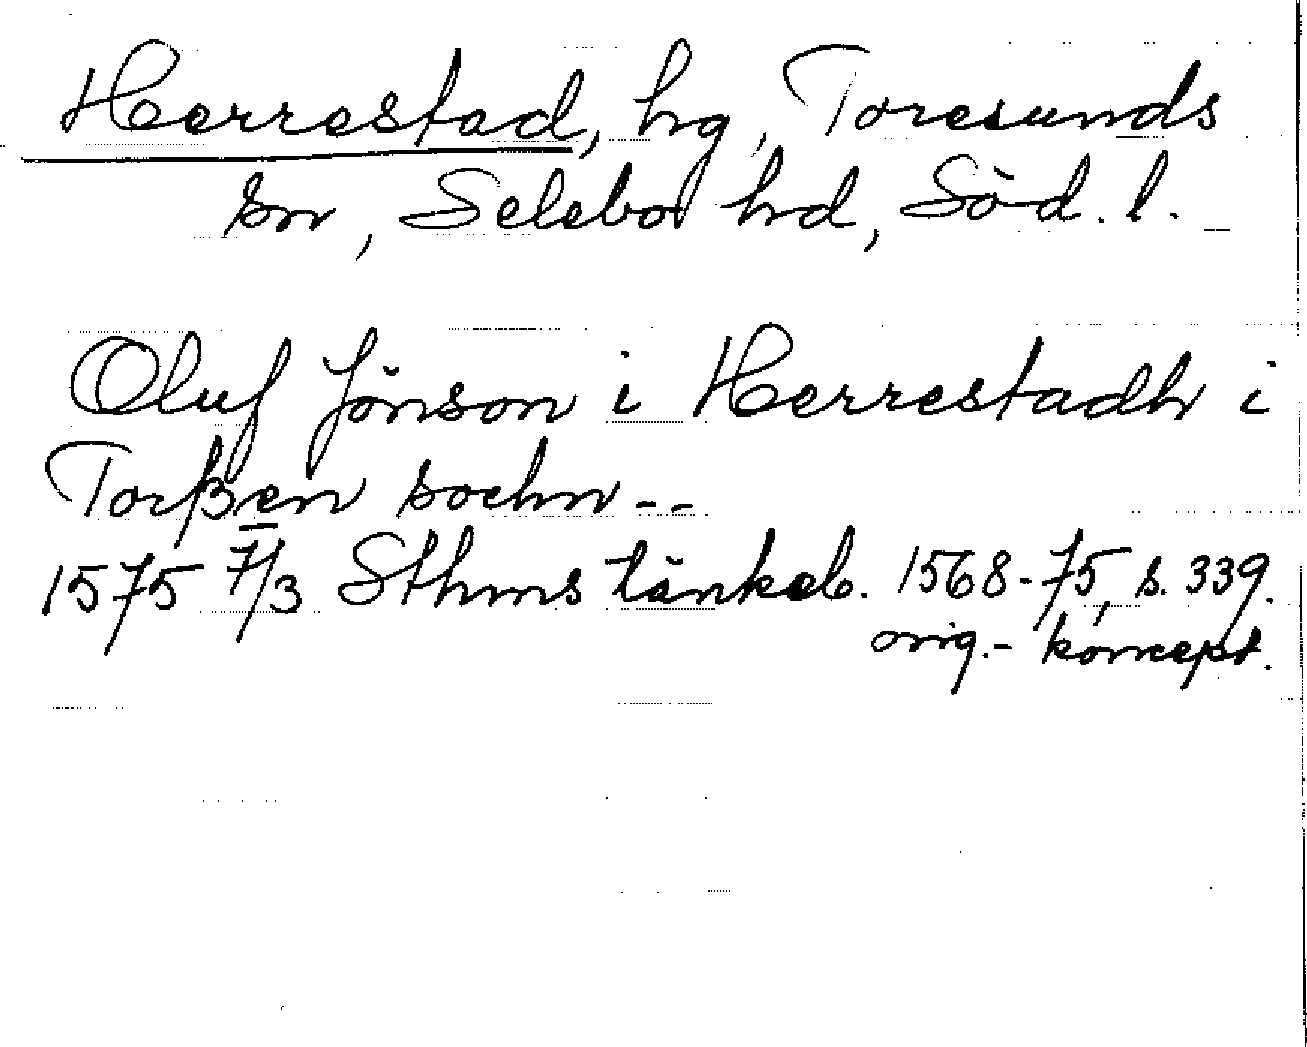 Herrestad, hg, Toresunds
sn, Selebo hd, Söd. l.
Oluf Jönson i Herrestadh i
Torßen sochn --
1575 7/3 Sthms tänkeb. 1568-75, s. 339.
orig.- koncept.